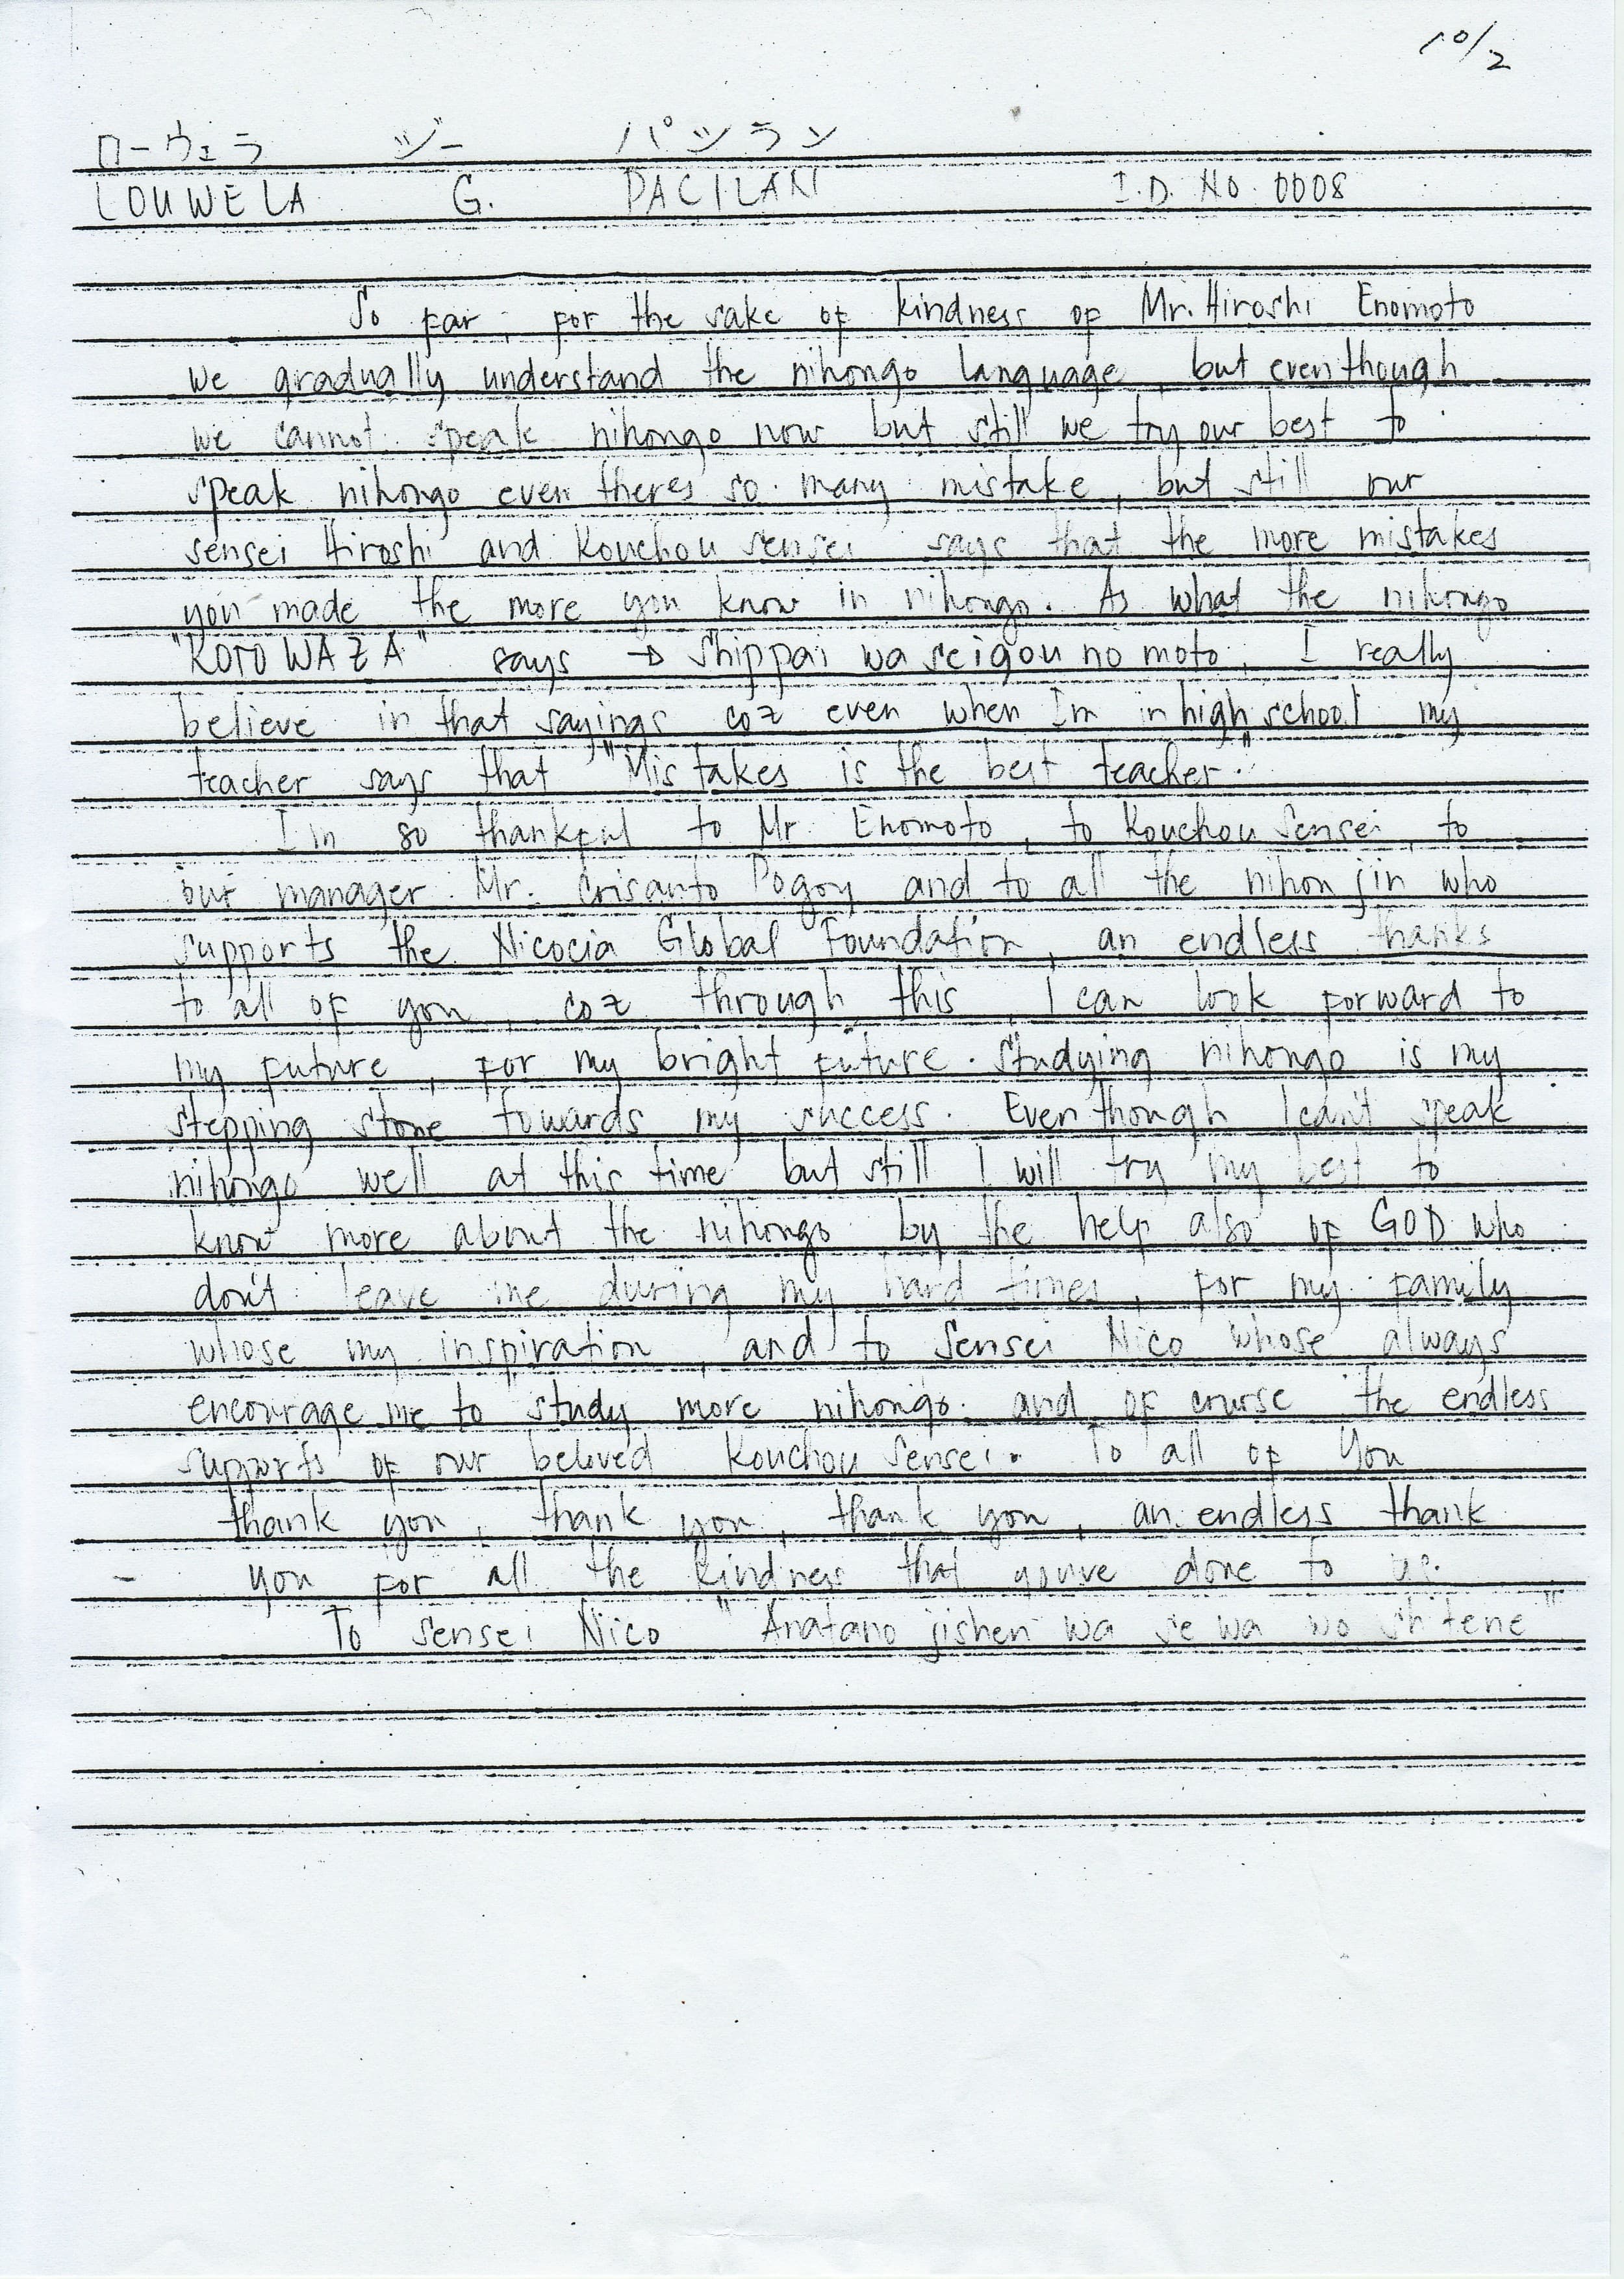 10/2
ローウェラ ジー パツラン
LOUWELA G. PACILAN I.D. No. 0008
So far, for the sake of kindness of Mr. Hiroshi Enomoto
we gradually understand the nihongo language, but eventhough
we cannot speak nihongo now but still we try our best to
speak nihongo even theres so many mistake, but still our
sensei Hiroshi and Kouchou sensei says that the more mistakes
you made the more you know in nihongo. As what the nihongo
"KOTOWAZA" says → shippai wa seigou no moto, I really
believe in that sayings coz even when Im in high school my
teacher says that "Mistakes is the best teacher."
Im so thankful to Mr. Enomoto, to Kouchou Sensei, to
our manager Mr. Crisanto Pogoy and to all the nihon jin who
supports the Nicocia Global Foundation, an endless thanks
to all of you, coz through this, I can look forward to
my future, for my bright future. Studying nihongo is my
stepping stone towards my success. Even though I can't speak
nihongo well at this time but still I will try my best to
know more about the nihongo by the help also of GOD who
don't leave me during my hard times, for my family
whose my inspiration, and to Sensei Nico whose always
encourage me to study more nihongo. and of course the endless
supports of our beloved Kouchou Sensei. To all of You
thank you, thank you, thank you, an endless thank
you for all the kindness that youve done to us.
To sensei Nico "Anatano jishen wa se wa wo shitene"